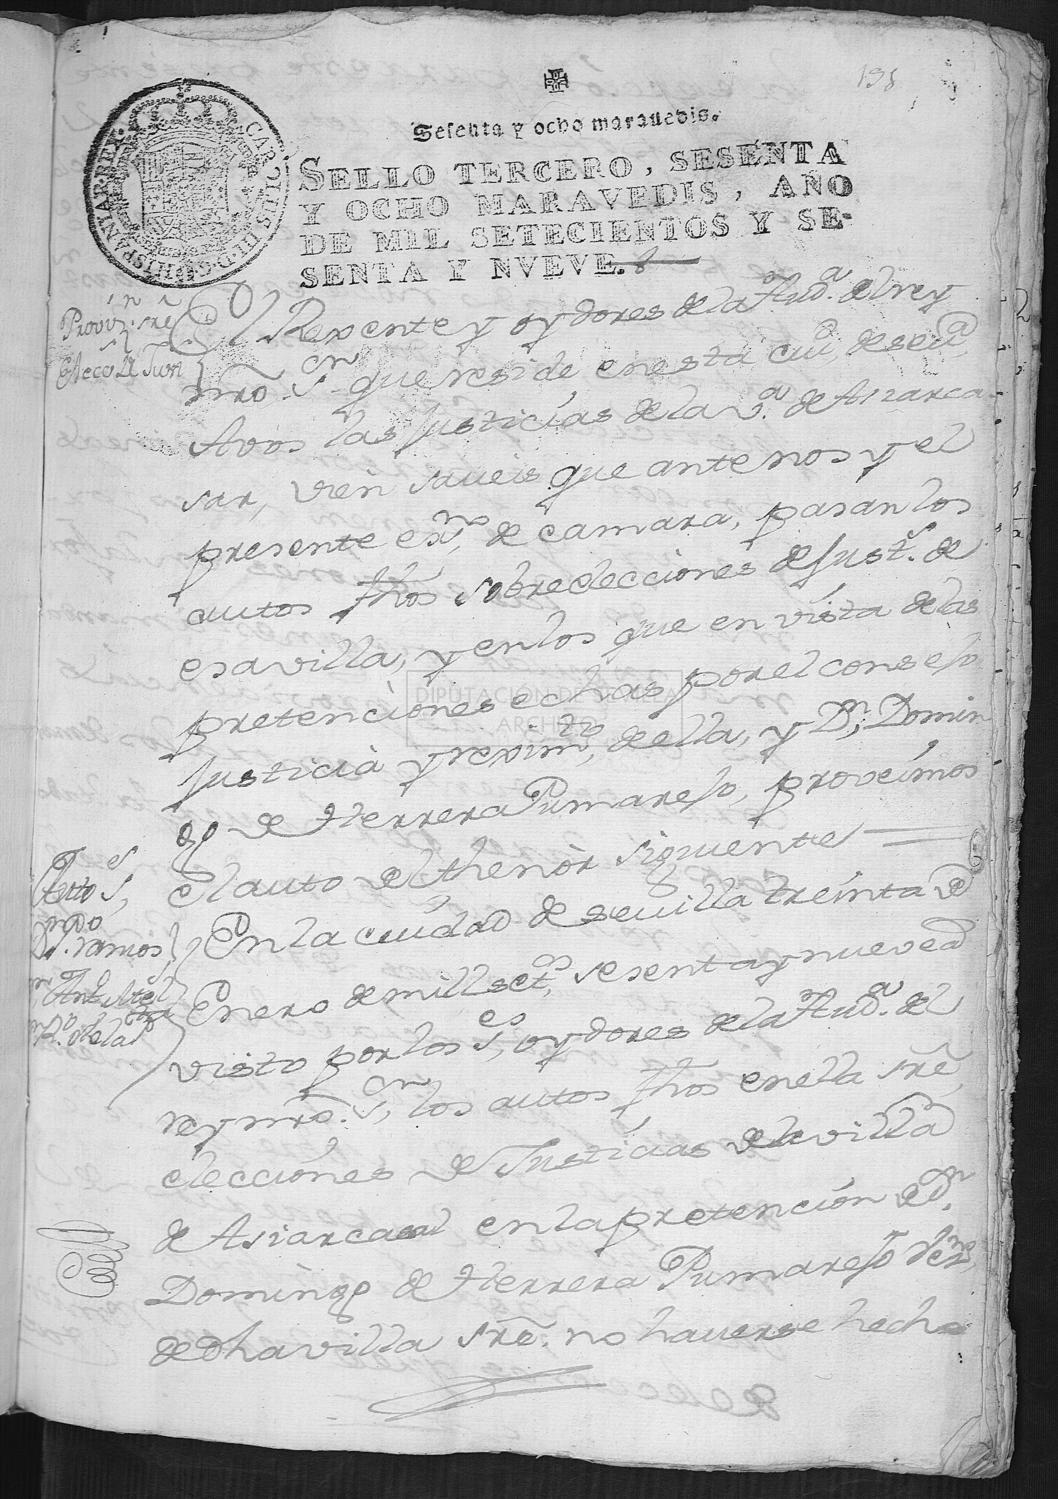 198
Sesenta y ocho maravedis.
SELLO TERCERO, SESENTA
Y OCHO MARAVEDIS, AÑO
DE MIL SETECIENTOS Y SE-
SENTA Y NVEVE.
CAROLUS III D. G. HISPANIAR. REX.
El Rexente y oydores de la Audª. del rey
nrõ. Sr. que reside en esta ciud. de sevª
Avos las Justicias de la vª. de Asiarca-
sar, vien saveis que ante nos y el
presente exno. de camara, pasan los
autos fhõs sobre elecciones de Just.s de
esa villa, y en los que en vista de las
pretenciónes echas por el consejo
Justicia y reximto. della, y Dn. Domin
go de Herrera Pumarejo, proveímos
el auto del thenòr siguiente
Autos
Ramos
En la ciudad de sevilla treínta de
Enero de mill setos. sesenta y nueve
visto por los ses. oydores de la Audª. del
rey nrõ. Sr. los autos fhõs en ella srẽ
elecciónes de Justicias de la villa
de Asiarcasar en la pretención de Dn.
Domingo de Herrera Pumarejo vezno
de dha villa srẽ. no haverse hecho
DIPUTACIÓN DE SEVILLA
ARCHIVO